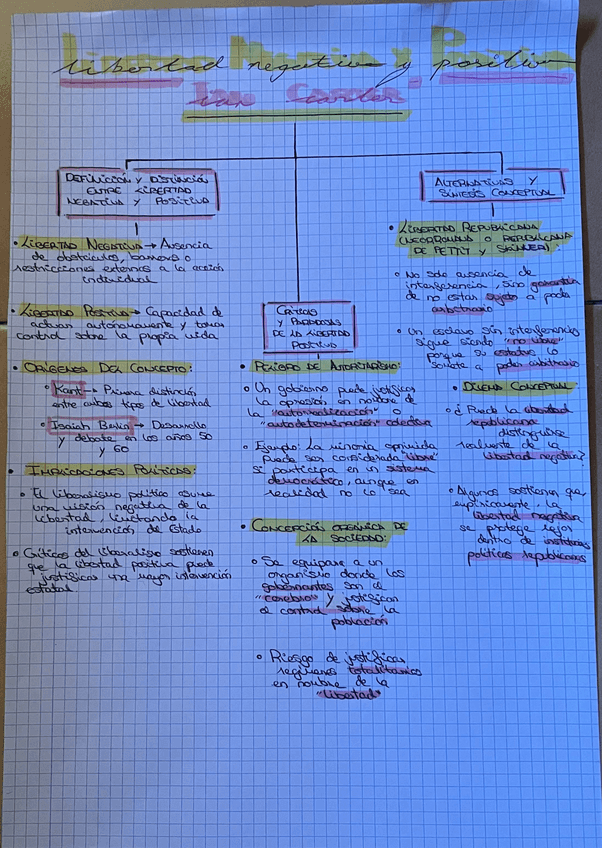 Libertad negativa y positiva
Ian Carter
DEFINICIÓN Y DISTINCIÓN
ENTRE LIBERTAD
NEGATIVA Y POSITIVA
• LIBERTAD NEGATIVA → Ausencia
de obstáculos, barreras o
restricciones externos a la acción
individual
• LIBERTAD POSITIVA → Capacidad de
actuar autónomamente y tomar
control sobre la propia vida
• ORÍGENES DEL CONCEPTO:
• Kant → Primera distinción
entre ambos tipos de libertad
• Isaiah Berlin → Desarrollo
y debate en los años 50
y 60
• IMPLICACIONES POLÍTICAS:
• El liberalismo político asume
una visión negativa de la
libertad, limitando la
intervención del Estado
• Críticos del liberalismo sostienen
que la libertad positiva puede
justificar una mayor intervención
estatal
CRÍTICAS
Y PARADOJAS
DE LA LIBERTAD
POSITIVA
• PELIGRO DE AUTORITARISMO:
• Un gobierno puede justificar
la opresión en nombre de
la "autorrealización" o
"autodeterminación colectiva"
• Ejemplo: La minoría oprimida
puede ser considerada "libre"
si participa en un sistema
democrático, aunque en
realidad no lo sea
• CONCEPCIÓN ORGÁNICA DE
LA SOCIEDAD:
• Se equipara a un
organismo donde los
gobernantes son el
"cerebro" y justifican
el control sobre la
población
• Riesgo de justificar
regímenes totalitarios
en nombre de la
"libertad"
ALTERNATIVAS Y
SÍNTESIS CONCEPTUAL
• LIBERTAD REPUBLICANA
(NEORROMANA O REPUBLICANA
DE PETTIT Y SKINNER):
• No solo ausencia de
interferencia, sino garantía
de no estar sujeto a poder
arbitrario
• Un esclavo sin interferencias
sigue siendo "no libre"
porque su estatus lo
somete a poder arbitrario
• DILEMA CONCEPTUAL:
• ¿Puede la libertad
republicana
distinguirse
realmente de la
libertad negativa?
• Algunos sostienen que
empíricamente, la
libertad negativa
se protege mejor
dentro de instituciones
políticas republicanas